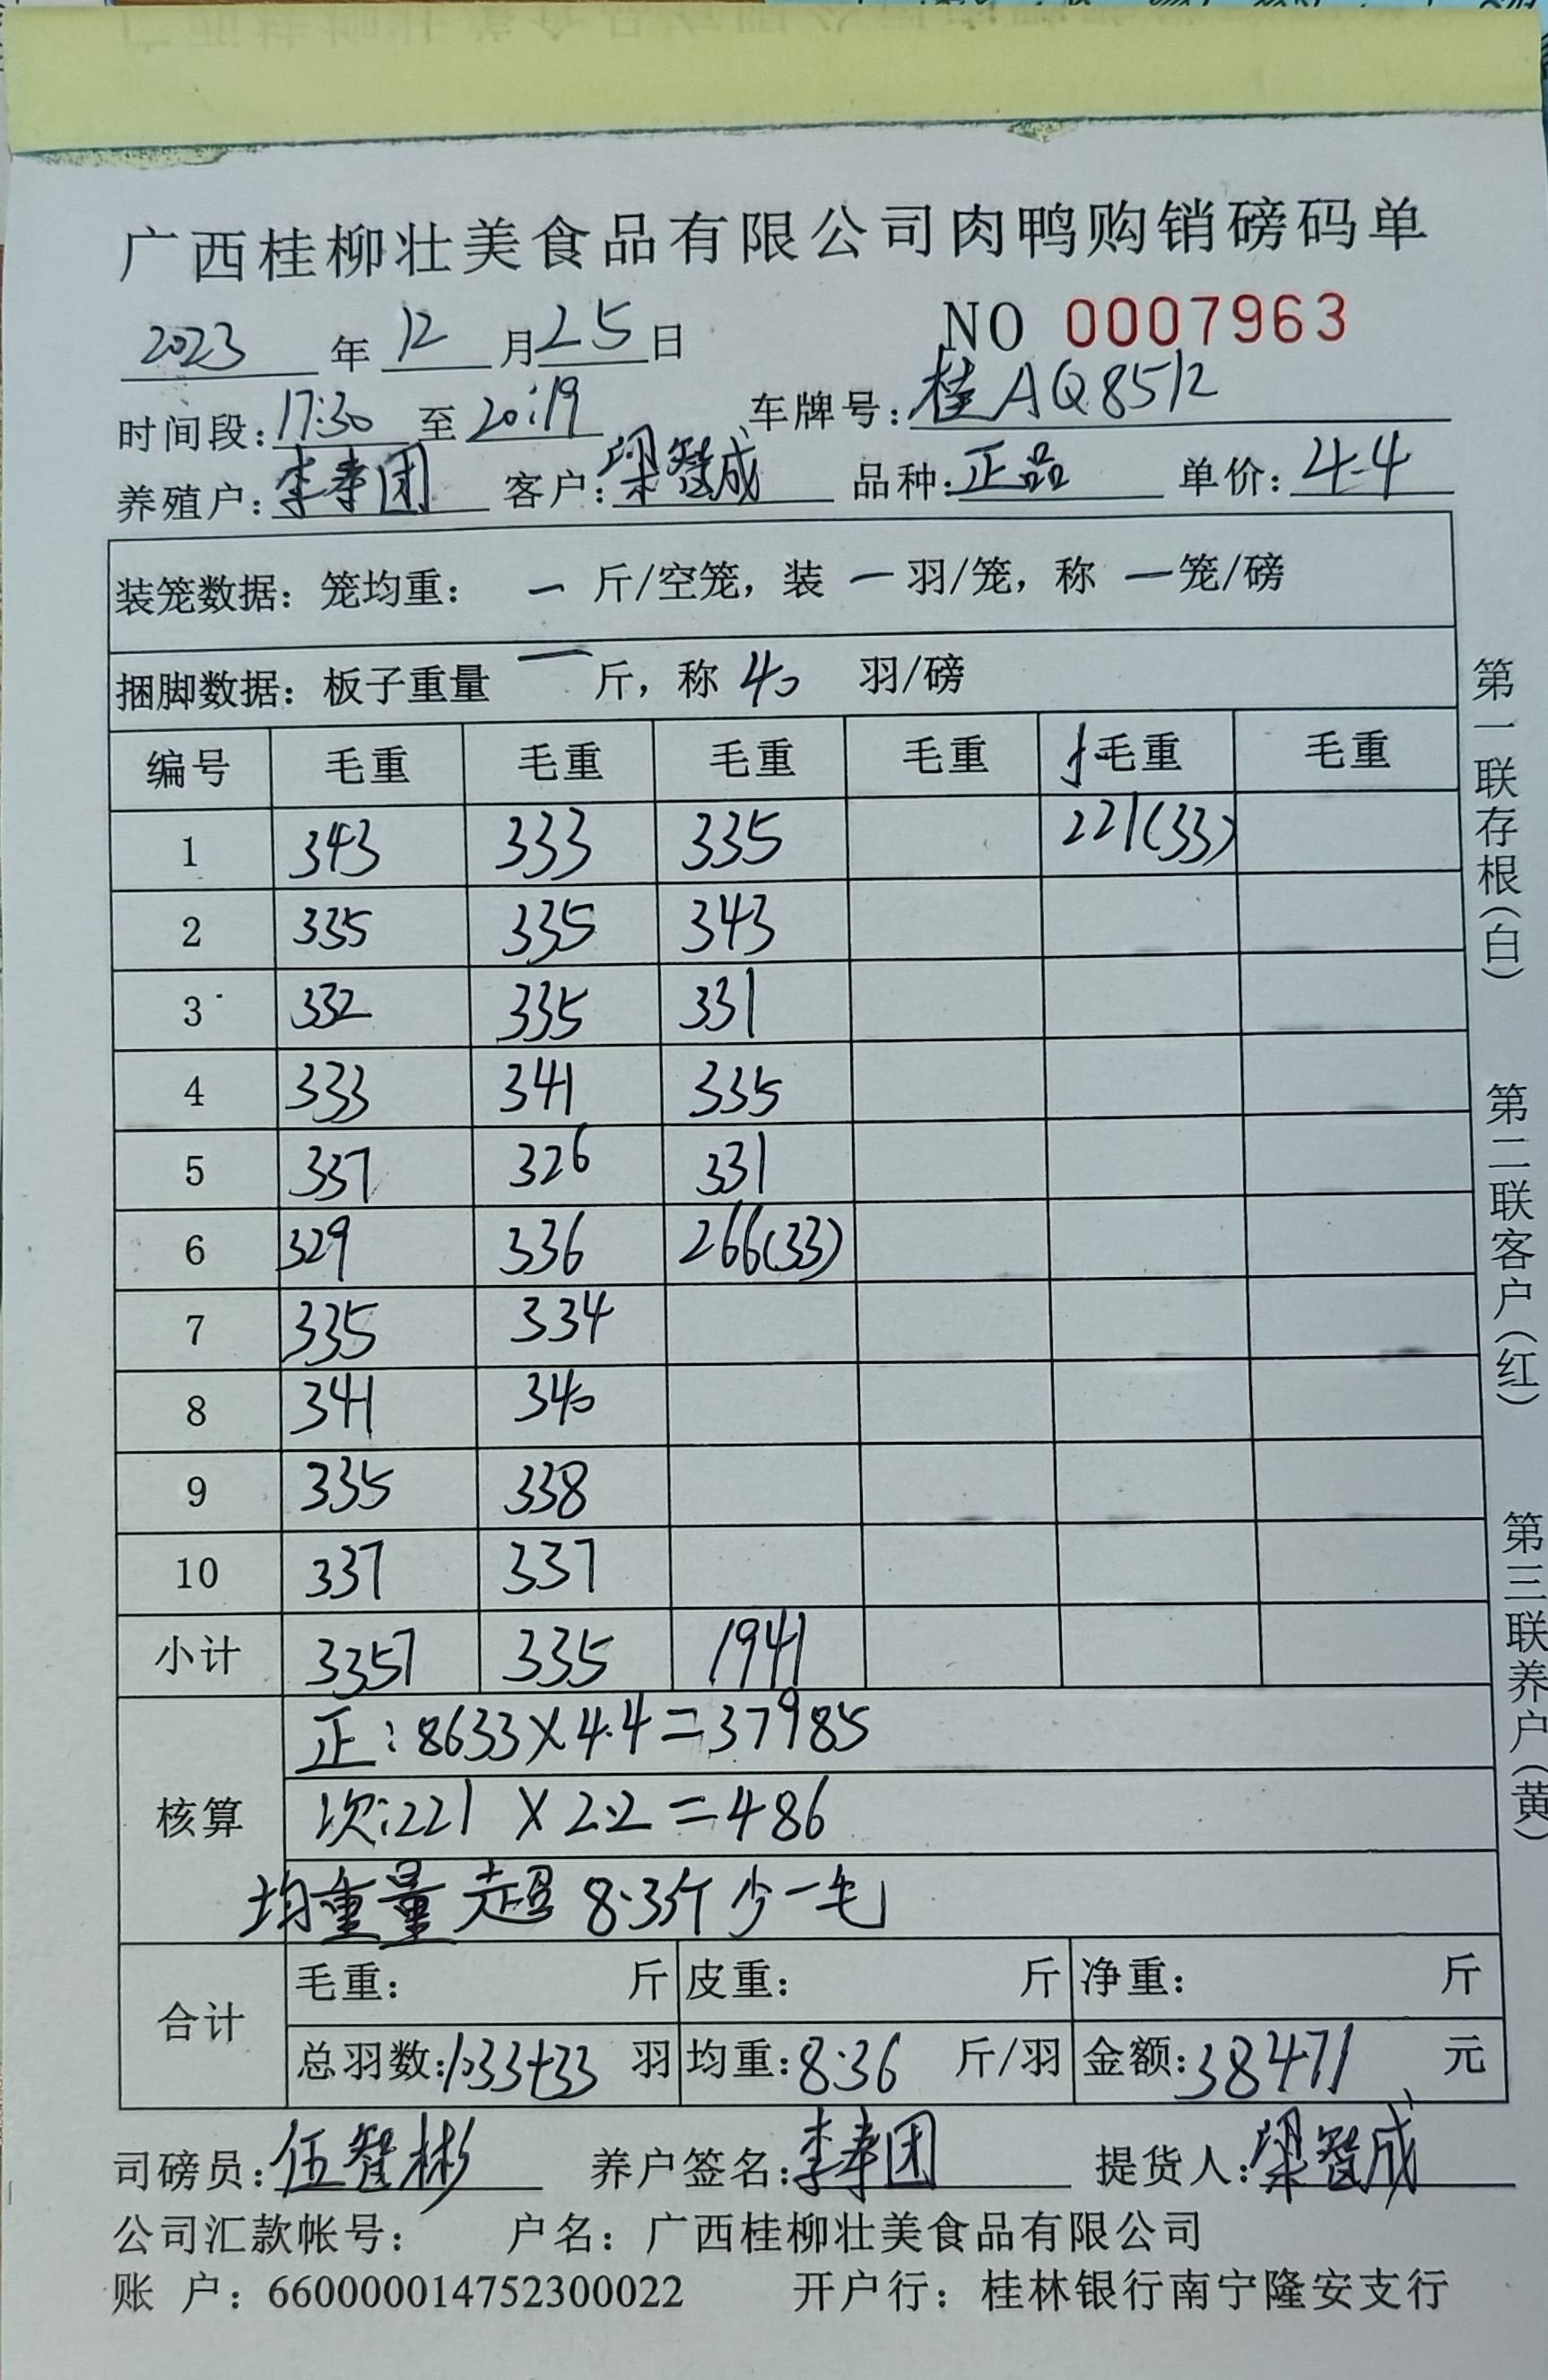 广西桂柳壮美食品有限公司肉鸭购销磅码单
2023 年 12 月 25 日 NO 0007963
时间段: 17:30 至 20:19 车牌号: 桂AQ8512
养殖户: 李 团 客户: 梁智成 品种: 正品 单价: 4.4
装笼数据: 笼均重: 一 斤/空笼, 装 一 羽/笼, 称 一 笼/磅
捆脚数据: 板子重量 一 斤, 称 40 羽/磅
编号 毛重 毛重 毛重 毛重 毛重 毛重
1 343 333 335 221(33)
2 335 335 343
3 332 335 331
4 333 341 335
5 337 326 331
6 329 336 266(33)
7 335 334
8 341 340
9 335 338
10 337 337
小计 3357 335 1941
核算
正: 8633×4.4=37985
次: 221×2.2=486
均重量超8.3斤少一毛
合计
毛重: 斤 皮重: 斤 净重: 斤
总羽数: 1033+33 羽 均重: 8.36 斤/羽 金额: 38471 元
司磅员: 伍智彬 养户签名: 李 团 提货人: 梁智成
公司汇款帐号: 户名: 广西桂柳壮美食品有限公司
账 户: 660000014752300022 开户行: 桂林银行南宁隆安支行
第一联存根(白) 第二联客户(红) 第三联养户(黄)